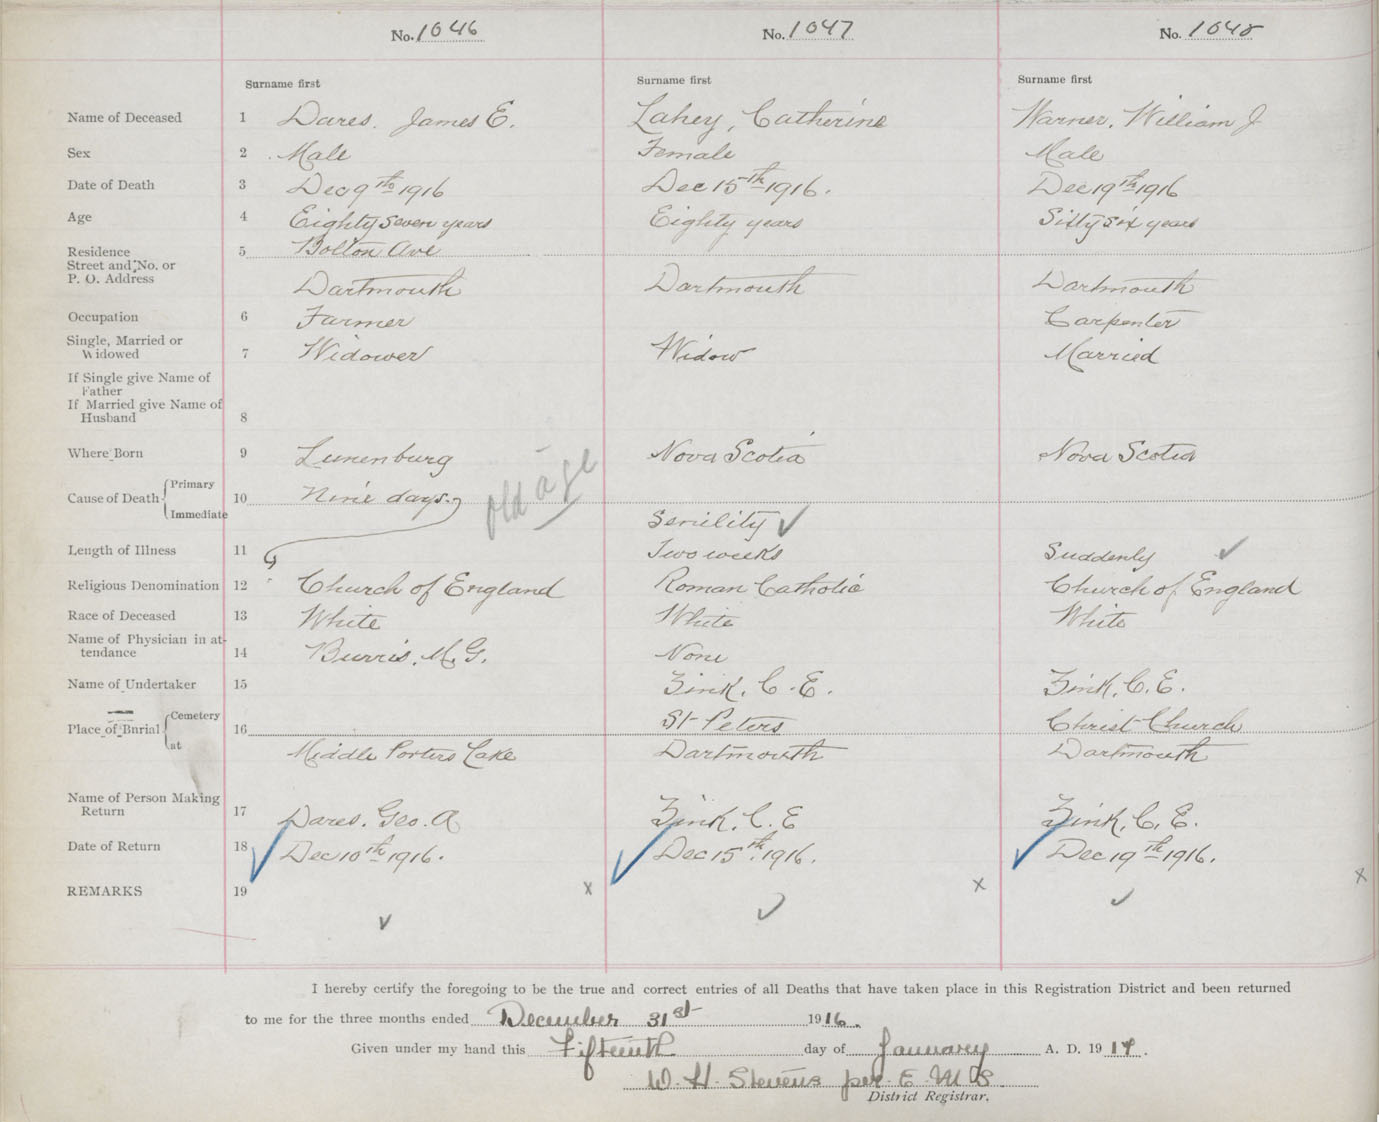 No. 1046 No. 1047 No. 1048
Surname first Surname first Surname first
Name of Deceased 1 Dares, James E. Lahey, Catherine Warner, William J
Sex 2 Male Female Male
Date of Death 3 Dec 9th 1916 Dec 15th 1916. Dec 19th 1916
Age 4 Eighty seven years Eighty years Sixty six years
Residence 5 Bolton Ave
Street and No. or
P. O. Address Dartmouth Dartmouth Dartmouth
Occupation 6 Farmer Carpenter
Single, Married or
Widowed 7 Widower Widow Married
If Single give Name of
Father
If Married give Name of
Husband 8
Where Born 9 Lunenburg Nova Scotia Nova Scotia
Cause of Death Primary 10 Nine days. old age
Immediate Senility
Length of Illness 11 Two weeks Suddenly
Religious Denomination 12 Church of England Roman Catholic Church of England
Race of Deceased 13 White White White
Name of Physician in at-
tendance 14 Burris, M. G. None
Name of Undertaker 15 Zink, C. E. Zink, C. E.
Place of Burial Cemetery 16 St Peters Christ Church
at Middle Porters Lake Dartmouth Dartmouth
Name of Person Making
Return 17 Dares, Geo. A Zink, C. E Zink, C. E.
Date of Return 18 Dec 10th 1916. Dec 15th 1916. Dec 19th 1916.
REMARKS 19 x x x
I hereby certify the foregoing to be the true and correct entries of all Deaths that have taken place in this Registration District and been returned
to me for the three months ended December 31st 1916.
Given under my hand this Fifteenth day of January A. D. 1917.
W. H. Stevens per E. M. S.
District Registrar.